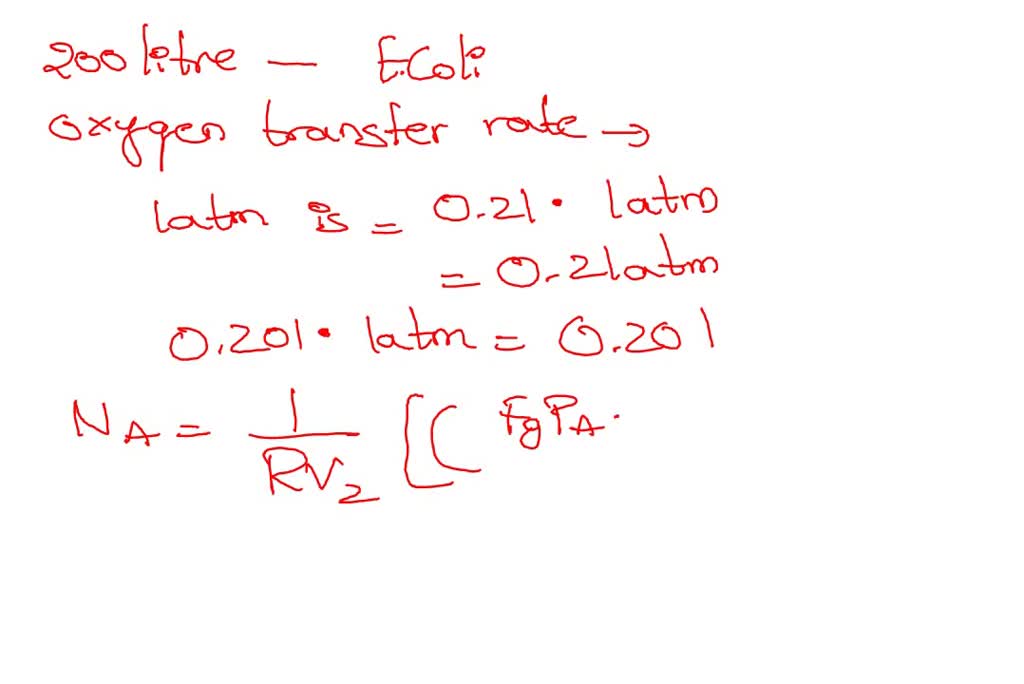 200 litre — E.Coli
oxygen transfer rate →
1atm is = 0.21 · 1atm
= 0.21atm
0.201 · 1atm = 0.201
N_A = 1/RV_2 [( F_g P_A ·